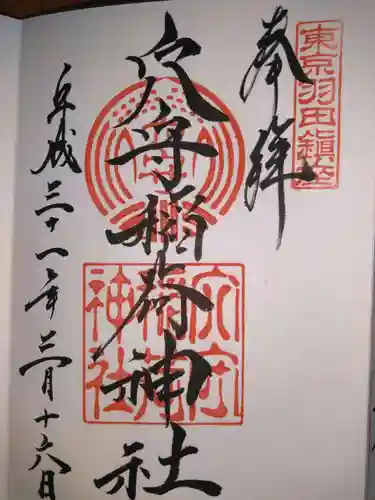 東京羽田鎮座
奉拝
穴守稲荷神社
穴守
稲荷
神社
平成三十一年三月十六日